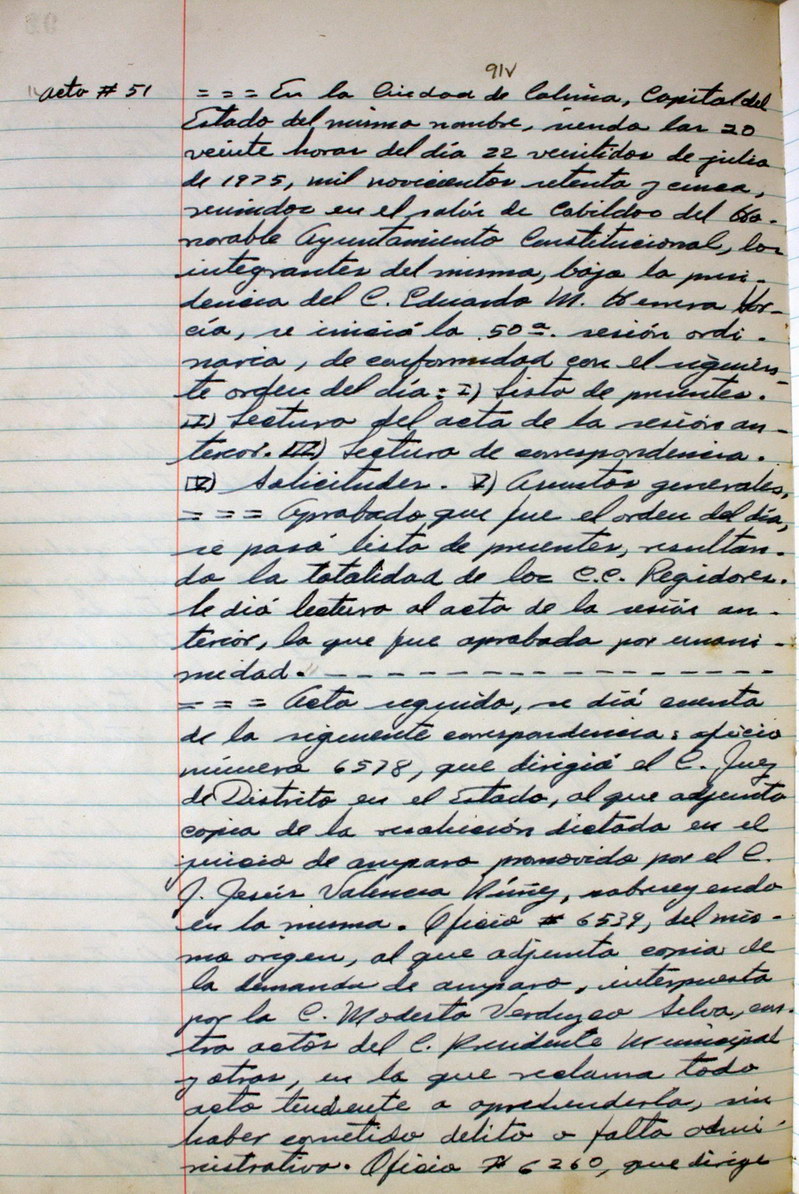 91v
Acta # 51
= = = En la Ciudad de Colima, Capital del
Estado del mismo nombre, siendo las 20
veinte horas del día 22 veintidos de julio
de 1975, mil novecientos setenta y cinco,
reunidos en el salón de Cabildos del Ho-
norable Ayuntamiento Constitucional, los
integrantes del mismo, bajo la presi-
dencia del C. Eduardo M. Herrera Gar-
cía, se inició la 50ª. sesión ordi-
naria, de conformidad con el siguien-
te orden del día: I) Lista de presentes.
II) Lectura del acta de la sesión an-
terior. III) Lectura de correspondencia.
IV) Solicitudes. V) Asuntos generales.
= = = Aprobado que fue el orden del día,
se pasó lista de presentes, resultan-
do la totalidad de los C.C. Regidores.
Se dió lectura al acta de la sesión an-
terior, la que fue aprobada por unani-
midad. - - - - - - - - - - - - - - - -
= = = Acto seguido, se dió cuenta
de la siguiente correspondencia: oficio
número 6578, que dirigió el C. Juez
de Distrito en el Estado, al que adjunta
copia de la resolución dictada en el
juicio de amparo promovido por el C.
J. Jesús Valencia Núñez, sobreseyendo
en la misma. Oficio # 6539, del mis-
mo origen, al que adjunta copia de
la demanda de amparo, interpuesta
por la C. Modesta Verduzco Silva, con-
tra actos del C. Presidente Municipal
y otros, en la que reclama todo
acto tendiente a aprehenderla, sin
haber cometido delito o falta admi-
nistrativa. Oficio # 6260, que dirige